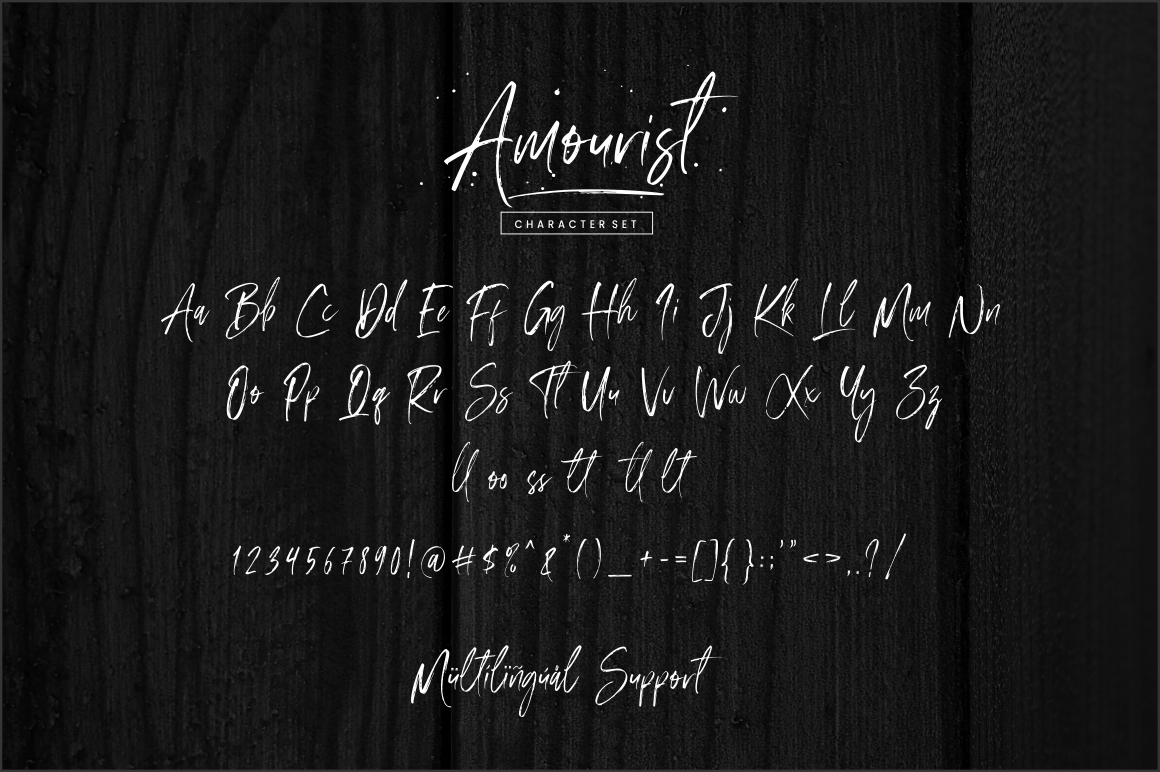 Amourist
CHARACTER SET
Aa Bb Cc Dd Ee Ff Gg Hh Ii Jj Kk Ll Mm Nn
Oo Pp Qq Rr Ss Tt Uu Vv Ww Xx Yy Zz
ll oo ss tt tl lt
1234567890!@#$%^&*()_+-=[]{}:;'"<>,.?/
Mültílïñgúål Support